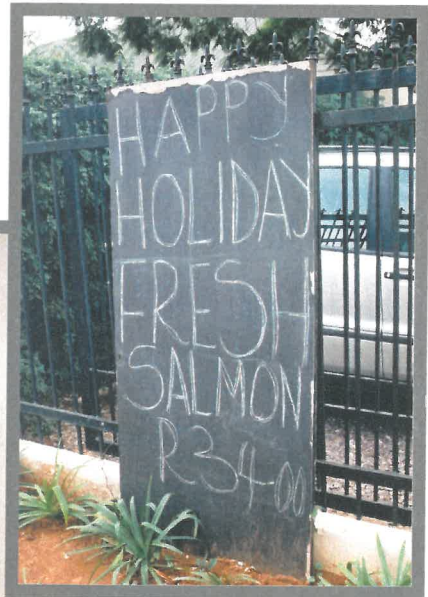 HAPPY
HOLIDAY
FRESH
SALMON
R34-00